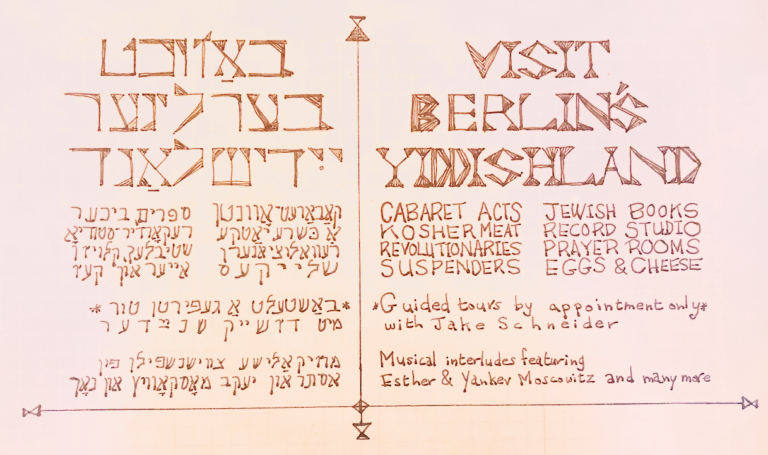 באַזוכט
בערלינער
ייִדישלאַנד
קאַבאַרעט־אָוונטן
אַ כּשרע יאַטקע
רעוואָלוציאָנערן
שלייקעס
ספרים, ביכער
רעקאָרדיר־סטודיאָ
שטיבלעך, קלויזן
אייער און קעז
*באַשטעלט אַ געפֿירטן טור*
מיט דזשייק שנײַדער
מוזיקאַלישע צווישנשפּילן פֿון
אסתר און יעקב מאָסקאָוויץ און נאָך
VISIT
BERLIN'S
YIDDISHLAND
CABARET ACTS
KOSHER MEAT
REVOLUTIONARIES
SUSPENDERS
JEWISH BOOKS
RECORD STUDIO
PRAYER ROOMS
EGGS & CHEESE
*Guided tours by appointment only*
with Jake Schneider
Musical interludes featuring
Esther & Yankev Moscowitz and many more